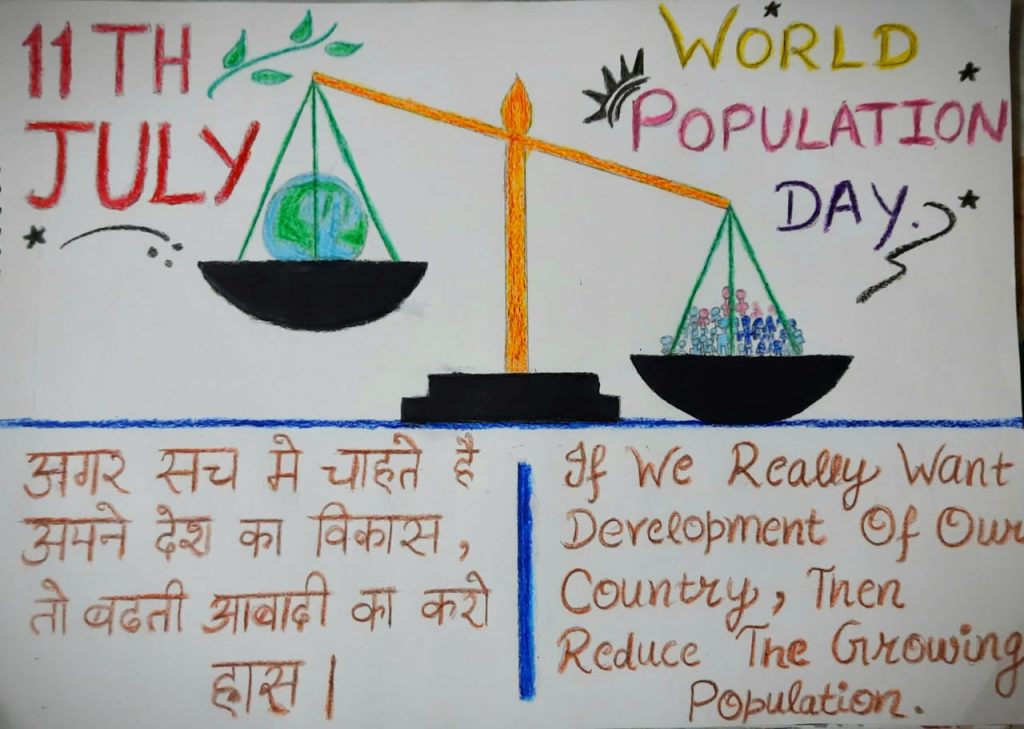 11TH
JULY
WORLD
POPULATION
DAY.
अगर सच मे चाहते है
अपने देश का विकास,
तो बढती आबादी का करो
ह्रास।
If We Really Want
Development Of Our
Country, Then
Reduce The Growing
Population.